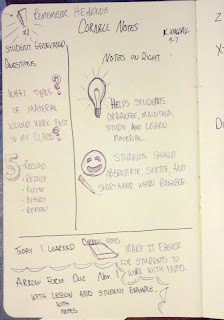 ! Remember Heading
Cornell Notes
Student Generated
Questions
Notes on Right
What types
of material
would work best
in my class?
Helps students
organize, maintain,
study and learn
material.
Students should
abbreviate, sketch and
shorthand when possible.
5 Record
- Reduce
- Recite
- Reflect
- Review
Today I Learned Cornell Notes
make it easier
for students to
work with info.
Arrow Form Due Nov.
with lesson and student example
with
notes
Z
X